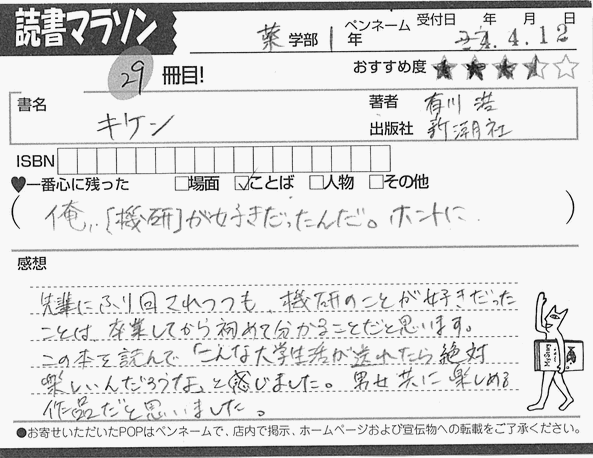 読書マラソン
薬学部 1年
ペンネーム
受付日 年 月 日
24.4.12
29冊目!
おすすめ度 ★★★★☆
書名
キケン
著者 有川 浩
出版社 新潮社
ISBN
♥一番心に残った □場面 ☑ことば □人物 □その他
(俺、[機研]が好きだったんだ。ホントに)
感想
先輩にふり回されつつも、機研のことが好きだった
ことは、卒業してから初めて分かることだと思います。
この本を読んで「こんな大学生活が送れたら絶対
楽しいんだろうな」と感じました。男女共に楽しめる
作品だと思いました。
●お寄せいただいたPOPはペンネームで、店内で掲示、ホームページおよび宣伝物への転載をご了承ください。